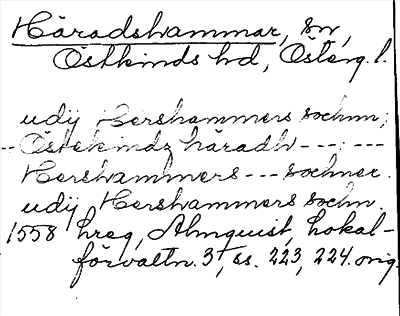 Häradshammar, sn,
Östkinds hd, Österg. l.
udij Hershammers sochnn;
-- Östekindz häradh ---:---
Hershammers --- sochner.
udij Hershammers sochn.
1558 hreg, Almquist, Lokal-
förvaltn. 3, ss. 223, 224. orig.